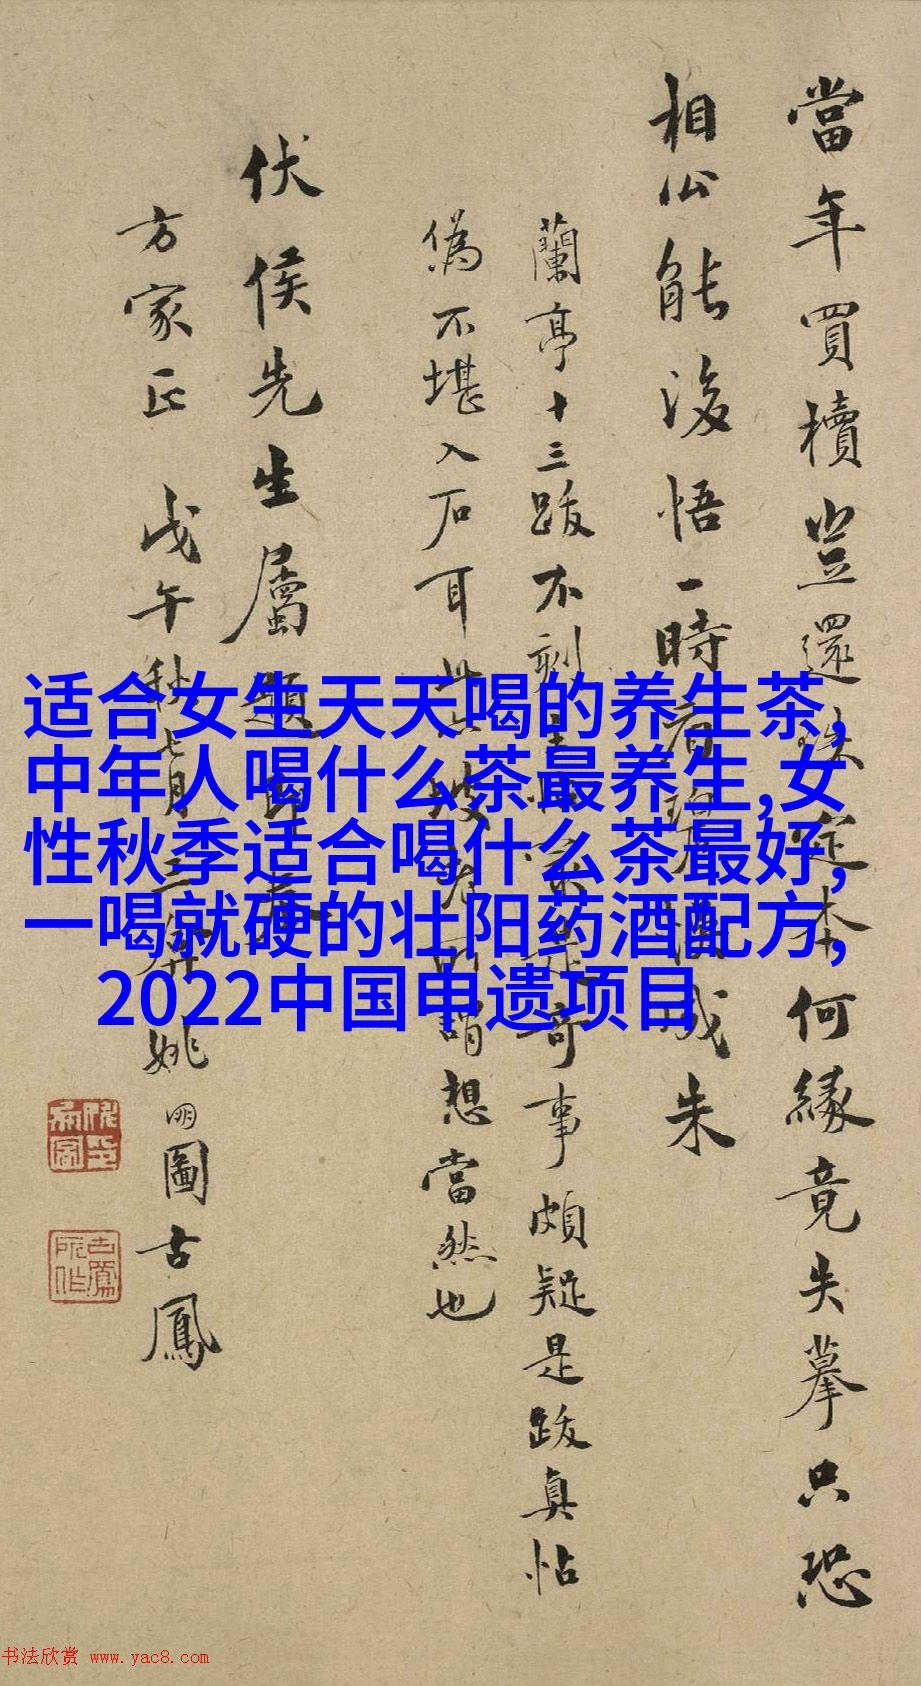 當年買櫝豈還珠定本何緣竟失摹只恐
相公能悟一時看成朱
蘭亭十三跋不刻奇事頗疑是跋真帖
偽不堪入石耳此亦坡老所謂想當然也
伏侯先生屬題即
方家正 戊午秋七月三姚明圖古鳳
适合女生天天喝的养生茶,
中年人喝什么茶最养生,女
性秋季适合喝什么茶最好,
一喝就硬的壮阳药酒配方,
2022中国申遗项目
书法欣赏 www.yac8.com